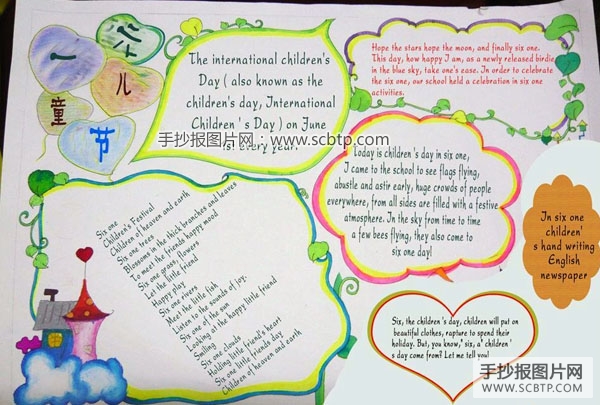 六
一
儿
童
节
The international children's
Day ( also known as the
children's day, International
Children ' s Day ) on June
手抄报图片网：www.scbtp.com
1st every year.
Hope the stars hope the moon, and finally six one.
This day, how happy I am, as a newly released birdie
in the blue sky, take one's ease. In order to celebrate
the six one, our school held a celebration in six one
activities.
Today is children ' s day in six one,
I came to the school to see flags flying,
abustle and astir early, huge crowds of people
everywhere, from all sides are filled with a festive
atmosphere. In the sky from time to time
a few bees flying, they also come to
six one day!
In six one
children'
s hand writing
English
newspaper
Six one
Children's Festival
Children of heaven and earth
Six one trees
Blossoms in the thick branches and leaves
To meet the friends happy mood
Six one grass, flowers
Let the little friend
Happy play
Six one rivers
Meet the little fish
Listen to the sounds of joy.
Six one of the sun
Looking at the happy little friend
Smiling
Six one clouds
Holding little friend's heart
Six one little friends day
Children of heaven and earth
Six, the children ' s day, children will put on
beautiful clothes, rapture to spend their
holiday. But, you know," six, a" children '
s day come from? Let me tell you!
手抄报图片网
WWW.SCBTP.COM